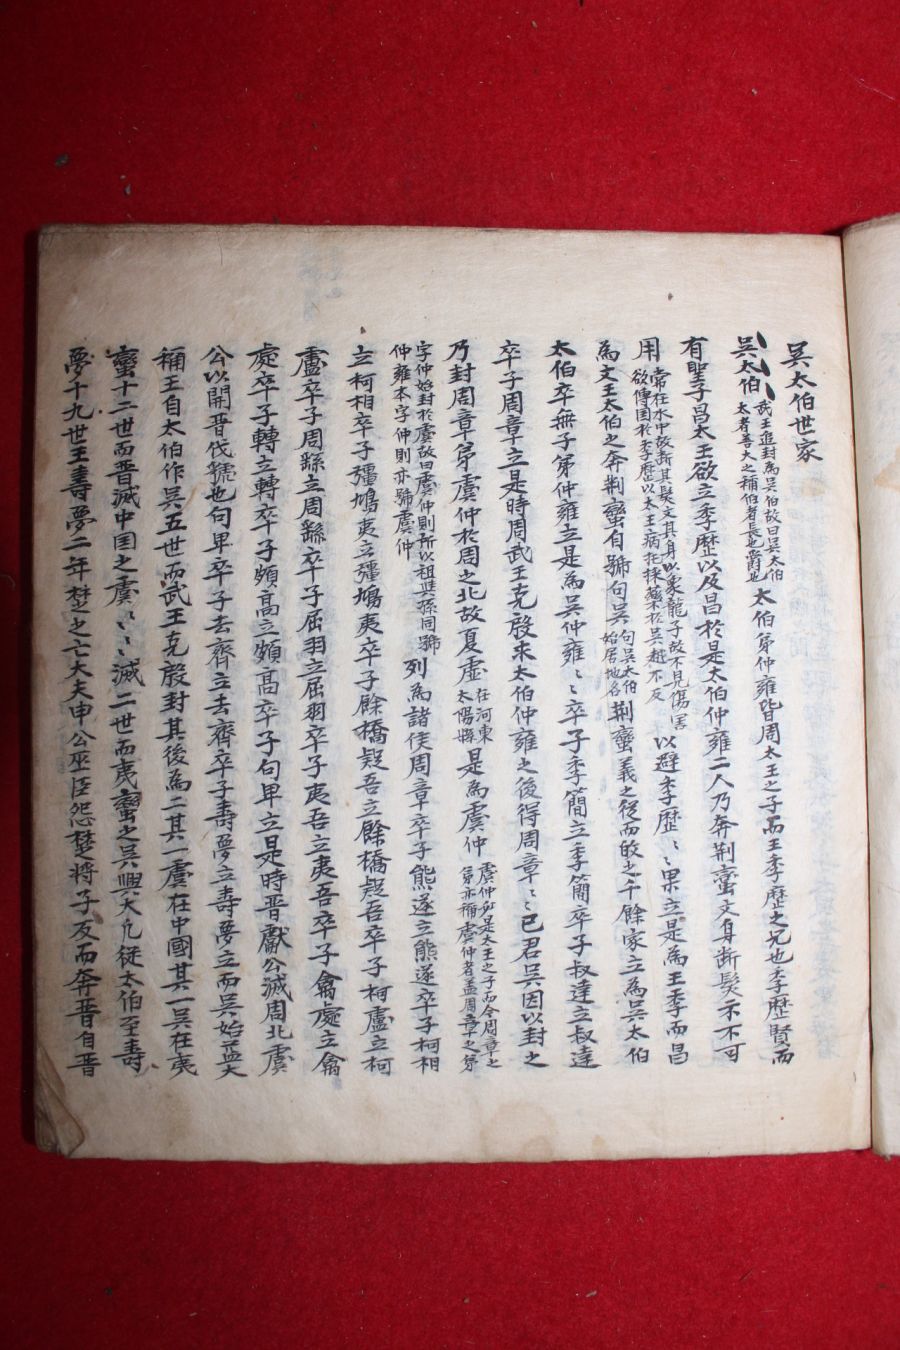 吳太伯世家
吳太伯武王進封為吳伯故曰吳太伯太者善大之稱伯者長也爵也太伯弟仲雍皆周太王之子而王季歷之兄也季歷賢而
有聖子昌太王欲立季歷以及昌於是太伯仲雍二人乃奔荆蠻文身断髮示不可
用常在水中故断其髮文其身以象龍子故不見傷害欲傳国於季歷以太王病托採藥於吳越不反以避季歷〻果立是為王季而昌
為文王太伯之奔荆蠻自號句吳句吳太伯始居地名荆蠻義之從而敀之千餘家立為吳太伯
太伯卒無子弟仲雍立是為吳仲雍〻卒子季簡立季簡卒子叔達立叔達
卒子周章立是時周武王克殷求太伯仲雍之後得周章〻已君吳因以封之
乃封周章弟虞仲於周之北故夏虛在河東太陽縣是為虞仲虞仲卽是太王之子而今周章之弟亦稱虞仲者盖周章之弟
字仲始封於虞故曰虞仲則所以祖與孫同號仲雍本字仲則亦號虞仲列為諸侯周章卒子熊遂立熊遂卒子柯相
立柯相卒子彊鳩夷立彊鳩夷卒子餘橋疑吾立餘橋疑吾卒子柯盧立柯
盧卒子周繇立周繇卒子屈羽立屈羽卒子夷吾立夷吾卒子禽處立禽
處卒子轉立轉卒子頗高立頗高卒子句卑立是時晋獻公滅周北虞
公以開晋伐虢也句卑卒子去齊立去齊卒子壽夢立壽夢立而吳始益大
稱王自太伯作吳五世而武王克殷封其後為二其一虞在中國其一吳在夷
蠻十二世而晋滅中国之虞〻〻滅二世而夷蠻之吳興大凡從太伯至壽
夢十九世王壽夢二年楚之亡大夫申公巫臣怨楚將子反而奔晋自晋